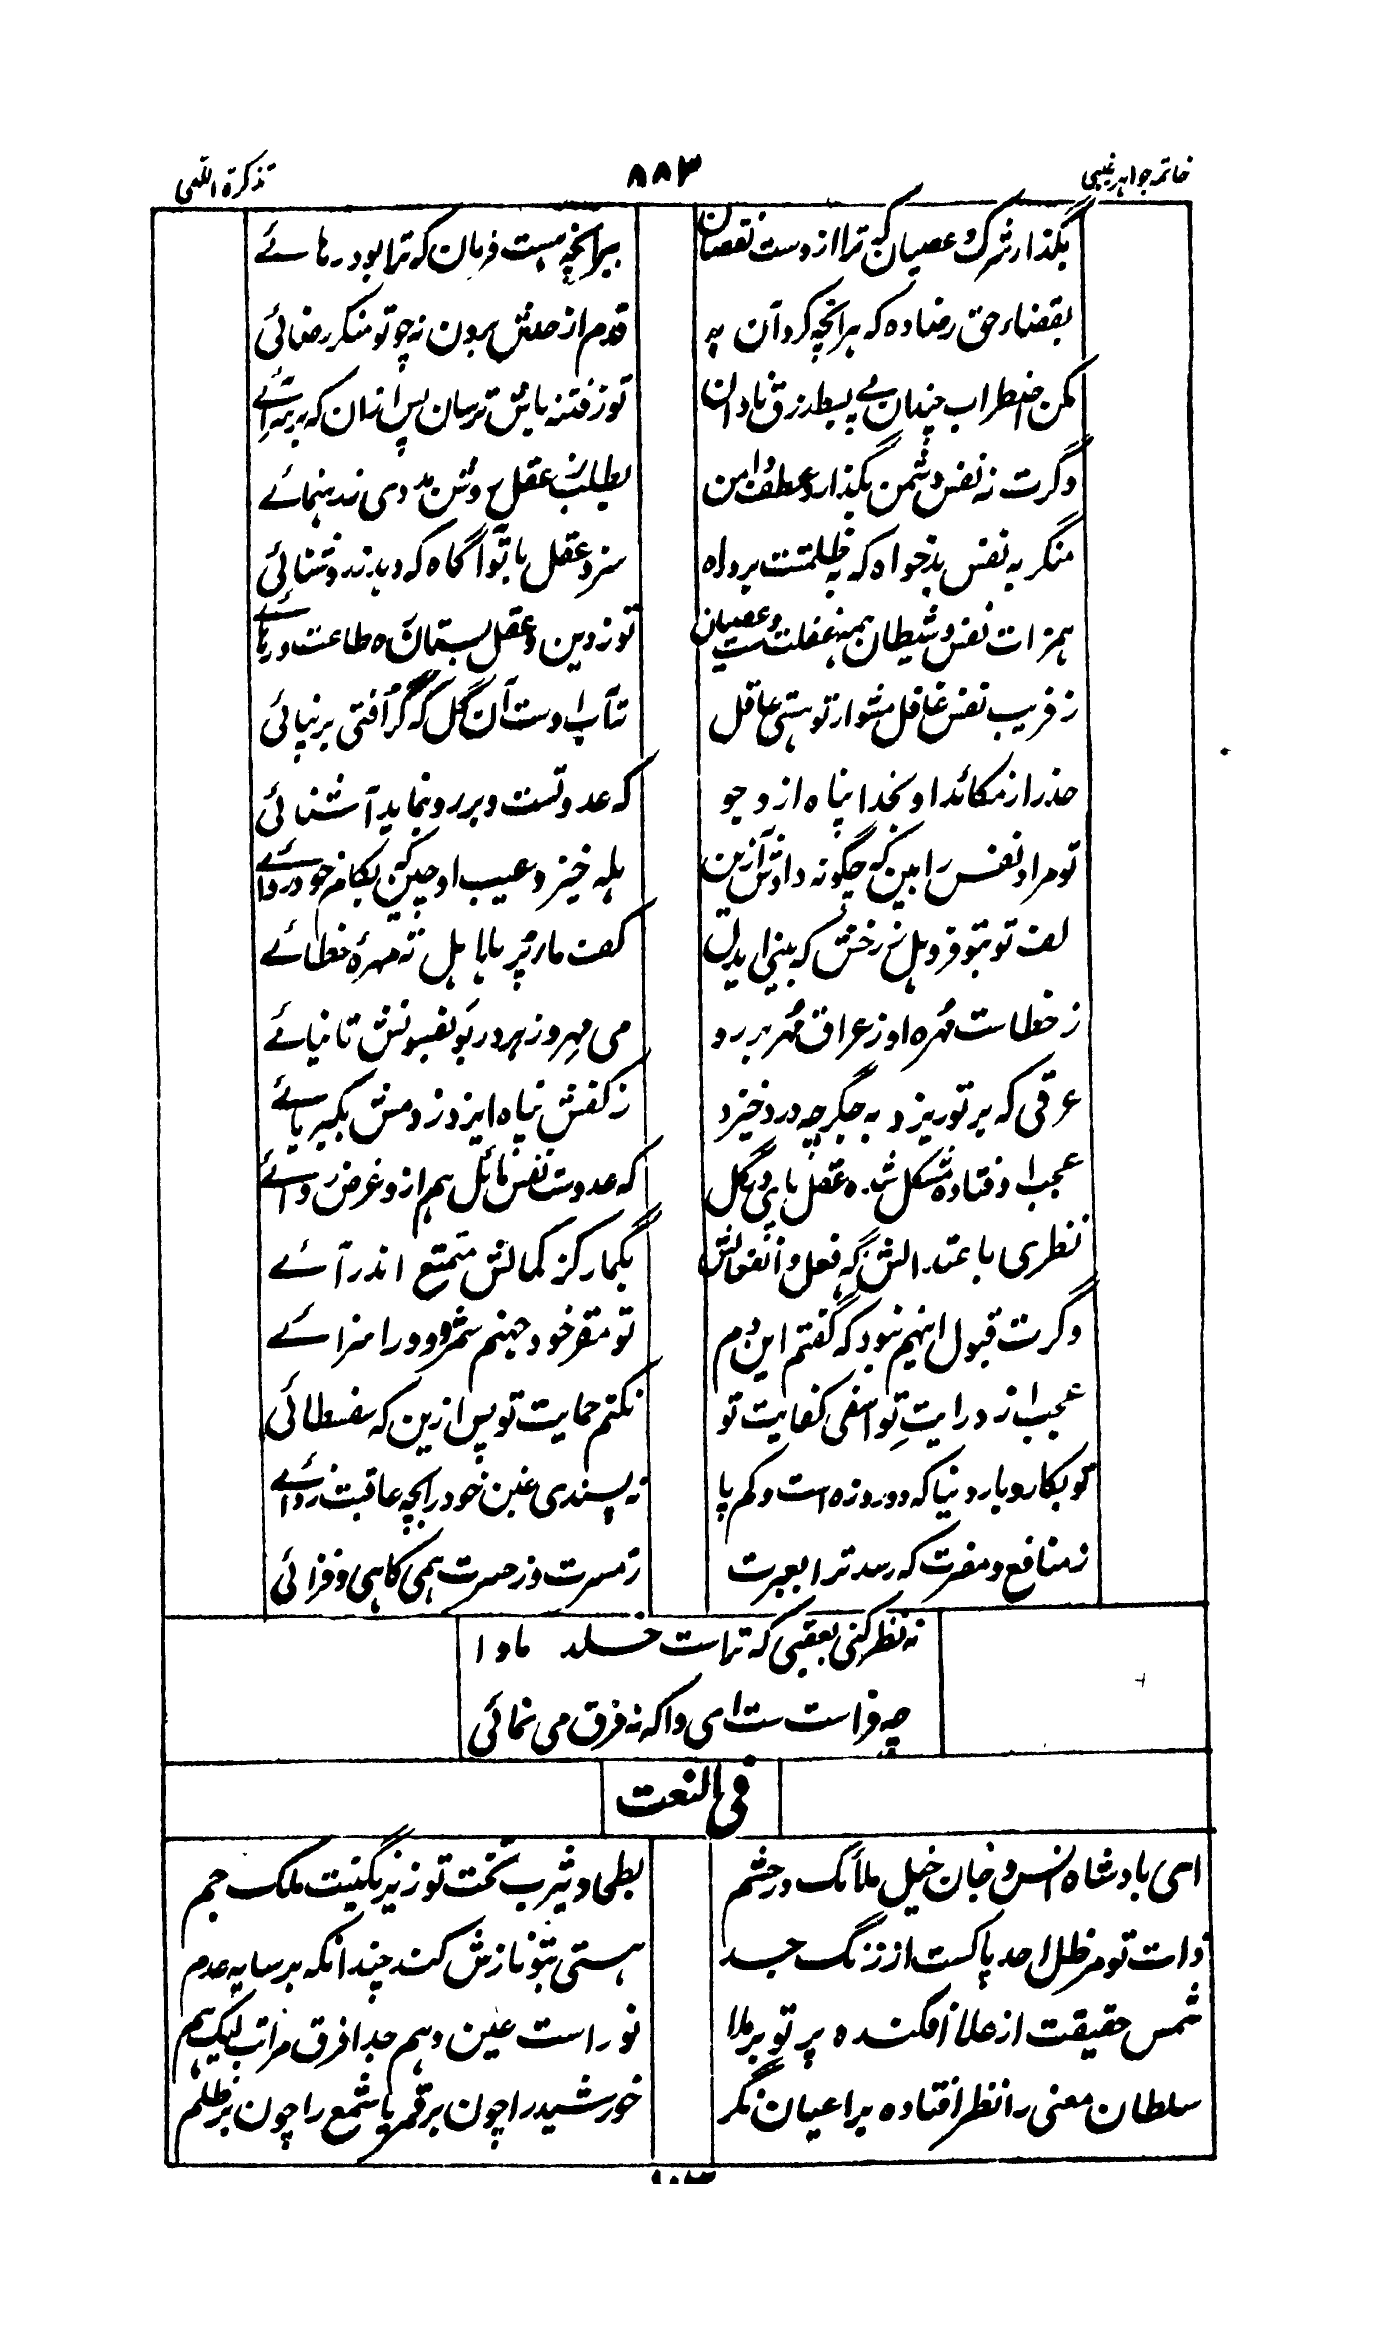 خاتمه جواهر غیبی
۸۸۳
تذکرة اللهی
بگذار شرک و عصیان که ترا از دوست نقصان
بہرانچہ ہست فرمان که ترا بود رہائے
بقضاء حق رضا ده که ہرانچہ کرد آن به
قدم از حدش برون نه چو تو منکر رضائی
مکن اضطراب چندان پے بسط رزق نادان
تو ز فتنه باش ترسان پس ازان که
وگرت ز نفس دشمن بگذارد و عطف دامن
بطلب ز عقل روشن مددی ز رہنمائے
منگر به نفس بدخواه که به ظلمتت برد راه
سزد عقل با تو آگاه که دهد ز روشنائی
ہمزات نفس و شیطان ہمہ غفلتست و عصیان
تو ز دین و عقل بستان ره طاعت و
ز فریب نفس غافل مشو ار تو ہستی عاقل
آن گل که گر افتی بر نیائی
حذر از مکائد او بخدا پناه ازو جو
که عدو تست و بر رو نماید آشنائی
تو مراد نفس را بین که چگونه دادش آزین
ہله خیز و عیب او چین که بکام خود
لف تو بتو فروہل ز رخش که بینی ای دل
کف مار پر ہلاہل نه مہرۂ خطائے
ز خطاست مہره او ز عراق مہر بر رو
می مہر و زہر در بو نفسونش تا نیائے
عرقی که بر تو ریزد به جگر چه درد خیزد
ز کفش پناه ایزد ز دمش بگیر پائے
عجب اوفتاده مشکل شده عقل پای در گل
که عدوت نفس مائل ہم ازو غرض روائے
نظری با عتدالش گہ فعل و انفعالش
بگمار کز کمالش متمتع اندر آئے
وگرت قبول اینہم نبود که گفتم این دم
تو مقر خود جہنم شمر و ورا سزائے
عجب از درایت تو اسفی کفایت تو
نکنم حمایت تو پس ازین که سفسطائی
تو بکاروبار دنیا که دو روزه است و کم پا
نه پسندی غبن خود را بچہ عاقبت زدائے
ز منافع و مضرت که رسد ترا بعبرت
ز مسرت و ز حسرت ہمی کاہی و فزائی
نه نظر کنی بعقبی که تراست خلد ماوا
چه فراست ست ای وا که نه فرق می نمائی
فی النعت
ای بادشاه انس و جان خیل ملائک در حشم
بطحی و یثرب تخت تو زیر نگینت ملک جم
ذات تو مر ظل احد پاکست از زنگ حسد
ہستی بتو نازش کند چندانکه بر سایه عدم
شمس حقیقت از علا افکنده پرتو برملا
نور است عین و ہم جدا فرق مراتب لیک ہم
سلطان معنی را نظر افتاده بر اعیان نگر
خورشید را چون بر قمر یا شمع را چون بر ظلم